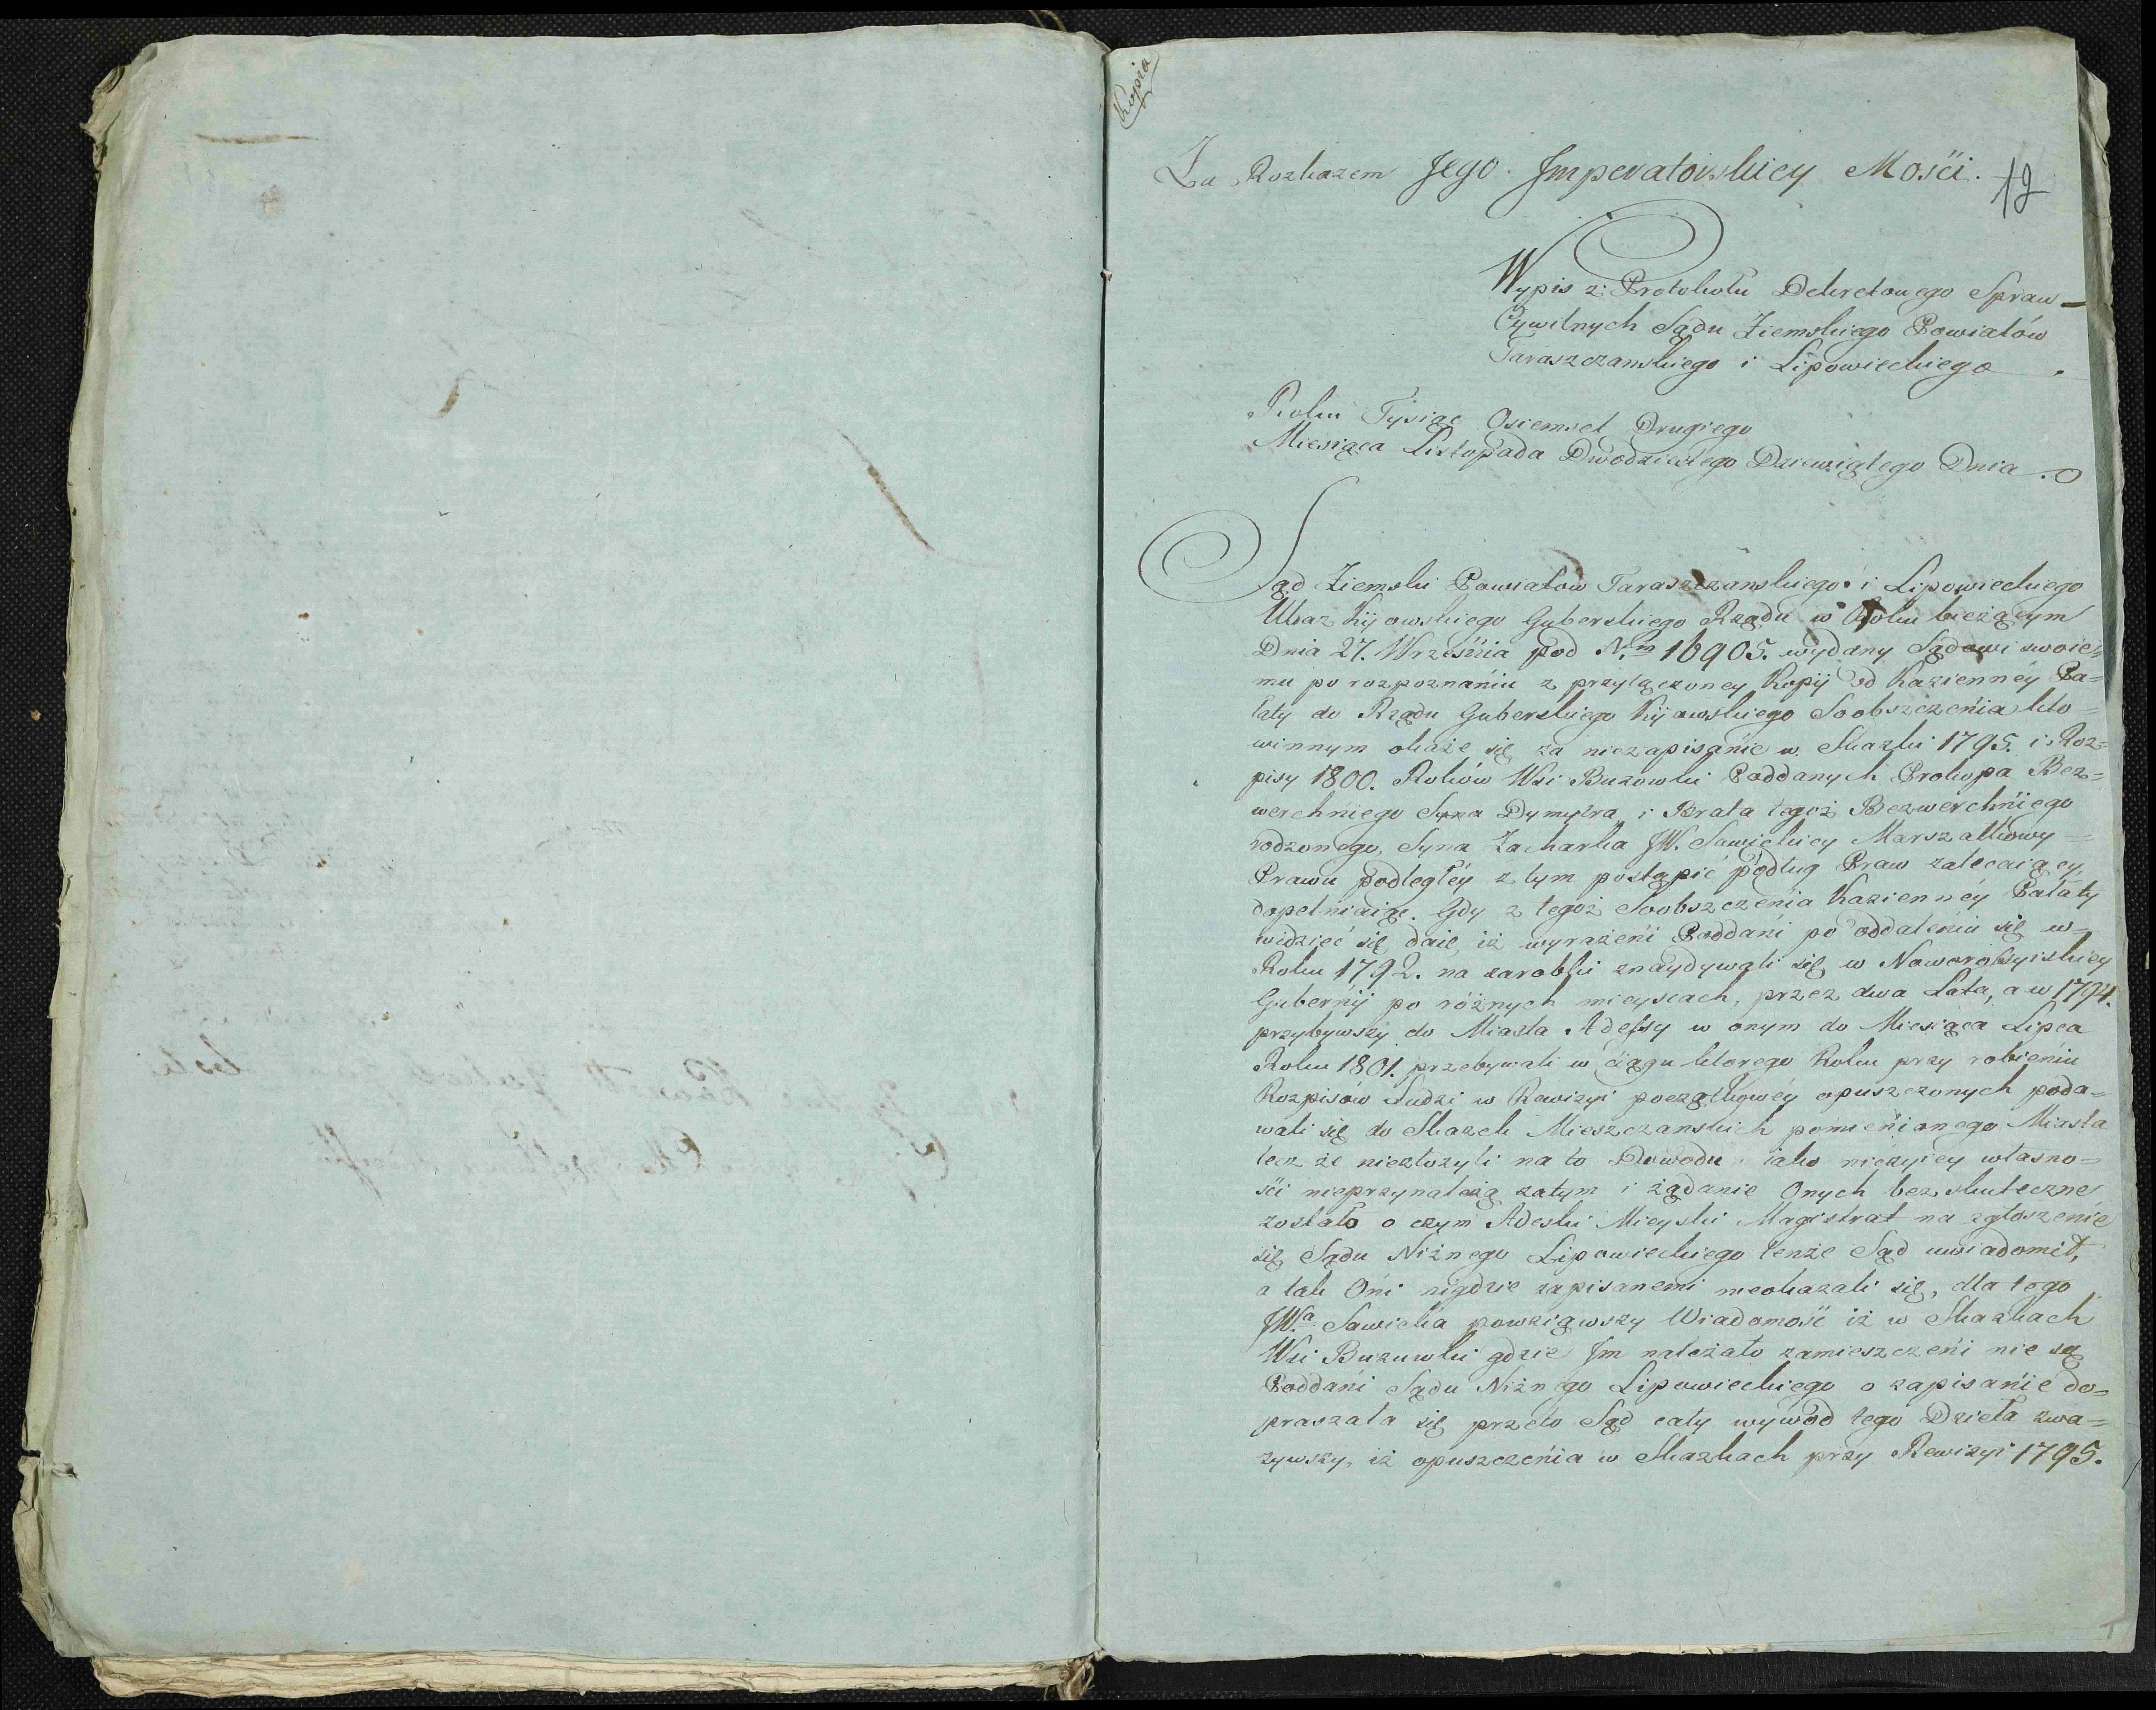 Kopia
Za Rozkazem Jego Imperatorskiey Mości.
12
Wypis z Protokołu Dekretowego Spraw
Cywilnych Sądu Ziemskiego Powiatów
Taraszczanskiego i Lipowieckiego.
Roku Tysiąc Osiemset Drugiego
Miesiąca Listopada Dwódziestego Dziewiątego Dnia.
Sąd Ziemski Powiatow Taraszczanskiego i Lipowieckiego
Ukaz Kijowskiego Guberskiego Rządu w Roku bieżącym
Dnia 27. Września pod N.m 16905. wydany Sądowi swoie=
mu po rozpoznániu z przyłączoney Kopij od Kaziennéy Pa=
łaty do Rządu Guberskiego Kijowskiego Soobszczeńia kto=
winnym okaże się za niezapisánie w Skazki 1795. i Roz=
pisy 1800. Roków Wsi Buzowki Poddanych Prokopa Bez=
werchniego Syna Dymytra i Brata tegoż Bezwerchńiego
rodzonego, Syna Zacharka JW. Sawickiey Marszałkowy=
Prawu podległéy z tym postąpić podług Praw zalecaiący,
dopełniaiąc. Gdy z tegoż Soobszczenia Kaziennéy Pałaty
widzieć się daie, iż wyrażeńi Poddańi po oddaleńiu się w=
Roku 1792. na zarobki znaydywali się w Noworosyiskiey
Guberńij po różnych mieyscach, przez dwa Lata, a w 1794.
przybywszy do Miasta Adessy w onym do Miesiąca Lipca
Roku 1801. przebywali w ciągu ktorego Roku przy robieniu
Rozpisów Ludzi w Rewizyi początkowéy opuszczonych poda=
wali się do Skazek Mieszczanskich pomieńianego Miasta
lecz że niezłożyli na to Dowodu iako nieczyiey własno=
ści nieprzynależą zatym i żądanie Onych bezskuteczne
zostało o czym Adeski Mieyski Magistrat na zgłoszenie
się Sądu Niżnego Lipowieckiego tenże Sąd uwiadomił,
a tak Oni nigdzie zapisanemi nieokazali się, dla tego
JW.a Sawicka powziąwszy Wiadomość iż w Skazkach
Wsi Buzuwki gdzie Jm należało zamieszczeńi nie są
Poddańi Sądu Niżnego Lipowieckiego o zapisáńie do=
praszała się przeto Sąd cały wywód tego Dzieła zwa=
żywszy, iż opuszczeńia w Skazkach przy Rewizyi 1795.